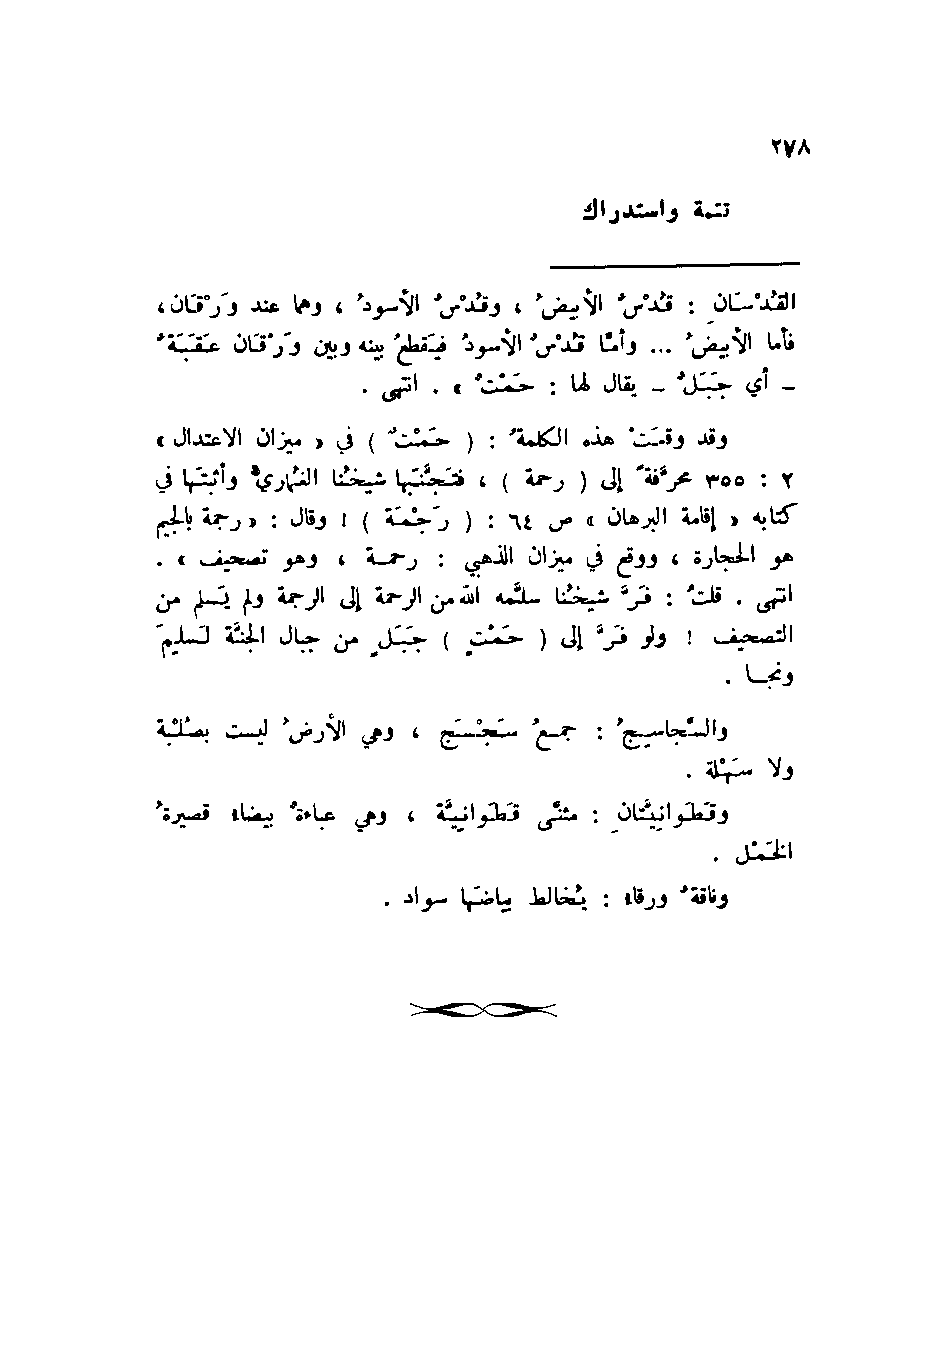 ٢٧٨
تتمة واستدراك
القُدْسَانِ : قُدْسٌ الأبيضُ ، وقُدْسٌ الأسودُ ، وهما عند وَرْقَان،
فأما الأبيضُ ... وأمّا قُدْسٌ الأسودُ فيَقطعُ بينه وبين وَرْقَان عَقَبَةٌ
ــ أي جَبَلٌ ــ يقال لها : حَمْتٌ » . انتهى .
وقد وقعَتْ هذه الكلمةُ : ( حَمْتٌ ) في « ميزان الاعتدال »
٢ : ٣٥٥ محرَّفةً إلى ( رحمة ) ، فتجنَّبَها شيخُنا الغُماريُّ وأثبتَها في
كتابه « إقامة البرهان » ص ٦٤ : ( رَجْمَة ) ! وقال : «رجمة بالجيم
هو الحجارة ، ووقع في ميزان الذهبي : رحمة ، وهو تصحيف » .
انتهى . قلتُ : فَرَّ شيخُنا سلَّمه الله من الرحمة إلى الرجمة ولم يَسلم من
التصحيف ! ولو فَرَّ إلى ( حَمْتٍ ) جَبَلٍ من جبال الجنَّة لَسَلِمَ
ونجا .
والسَّجاسِجُ : جمعُ سَجْسَج ، وهي الأرضُ ليست بصُلْبة
ولا سَهْلة .
وقَطَوانيَّتَانِ : مثنَّى قَطَوانيَّة ، وهي عباءةٌ بيضاء قصيرةُ
الخَمْل .
وناقةٌ ورقاء : يُخالط بياضَها سواد .